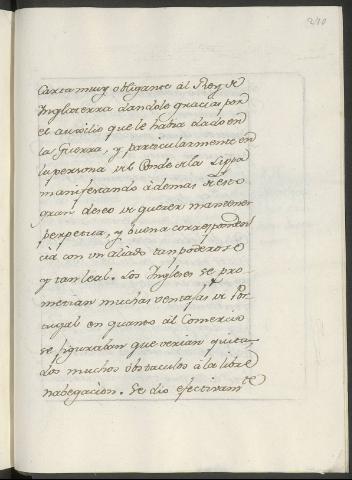 210
Carta muy obligante ál Rey de
Inglaterra dandole gracias por
el auxilio que le habia dado en
la Guerra, y particularmente en
la persona del Conde de la Lippa
manifestando ádemas de esto
gran deseo de querer mantener
perpetua, y buena correspondencia
cia con un aliado tan poderoso
y tan leal. Los Ingleses se pro
metian muchas ventajas de Por
tugal en quanto ál Comercio
se figuraban que verian quita-
dos muchos obstaculos á la libre
nabegacion. Se dio efectivam.te